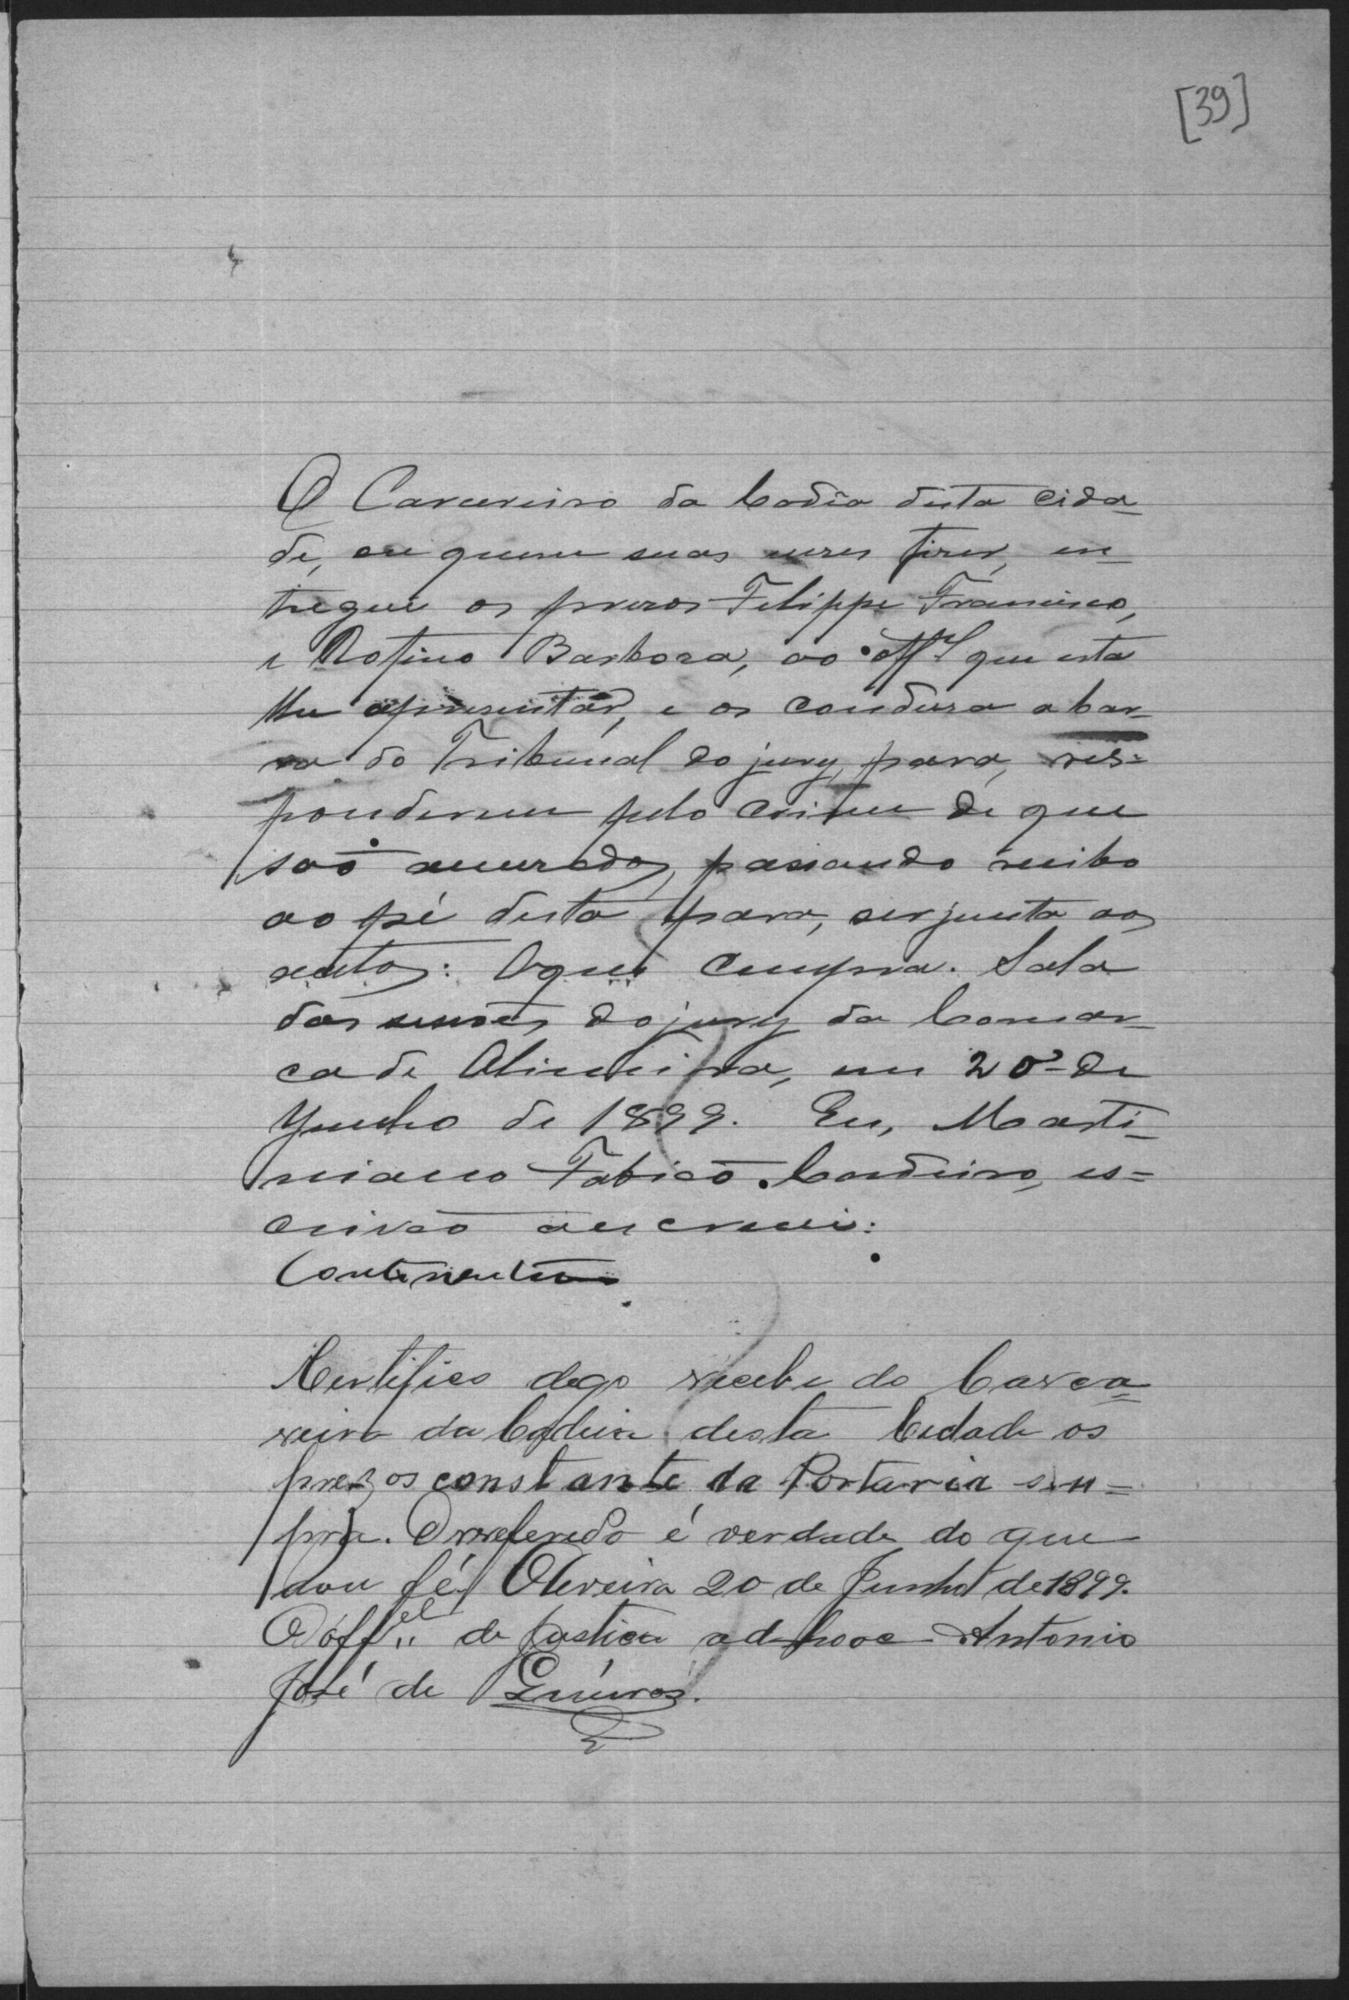 [39]
O Carcereiro da Cadea desta cida-
de, ou quem suas vezes fizer, en-
tregue os prezos Felippe Francisco,
e Rofino Barboza, ao offal que esta
lhe apresentar, e os conduza a bar-
ra do Tribunal do jury, para, res=
ponderem pelo crime de que
são accuzados, passando recibo
ao pé desta para, ser junta aos
autos: O que cumpra. Sala
das sessões do jury da Comar-
ca de Oliveira, em 20 de
Junho de 1899. Eu, Marti-
niano Fabião Cordeiro, es=
crivão a escrevi:
Certifico digo recebi do Carca=
reiro da Cadeia desta Cidade os
prezos constante da Portaria su=
pra. O referedo é verdade do que
dou fé Oliveira 20 de Junho de 1899.
O offel de Justica ad hooc Antonio
José de Queiroz.